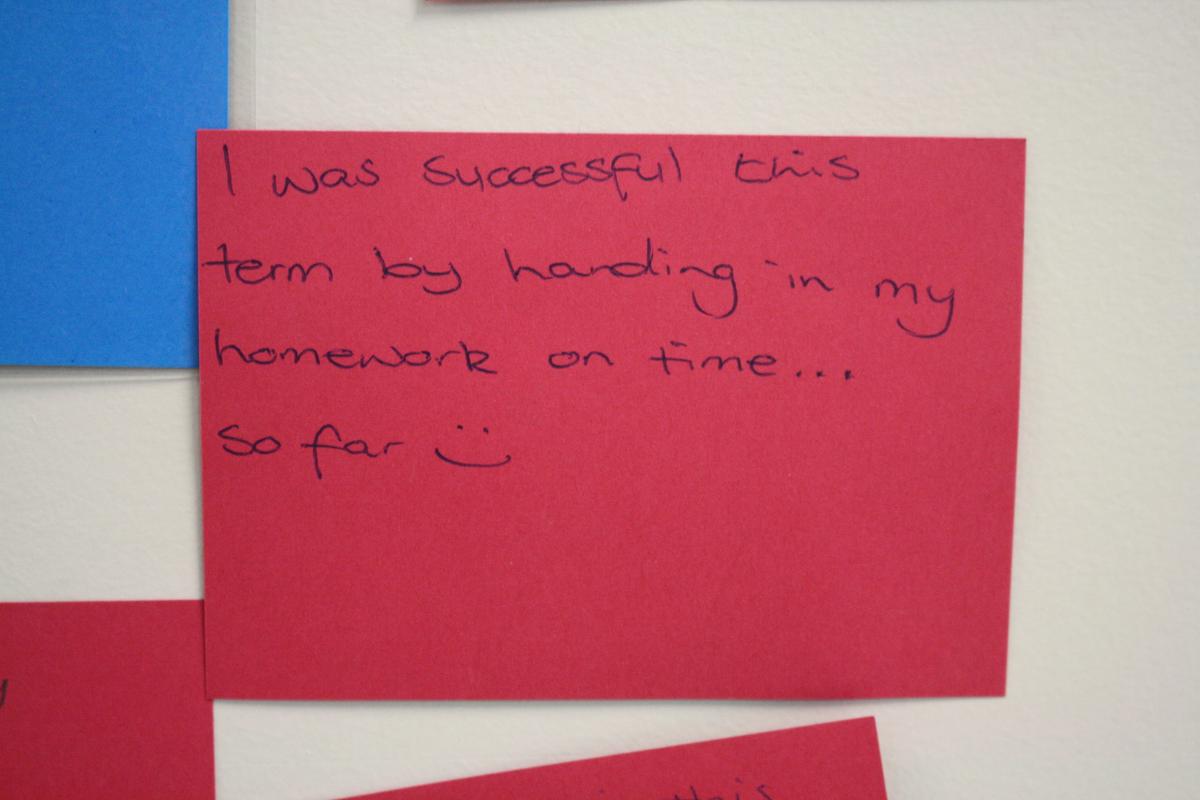 I was successful this
term by handing in my
homework on time...
so far :)
this